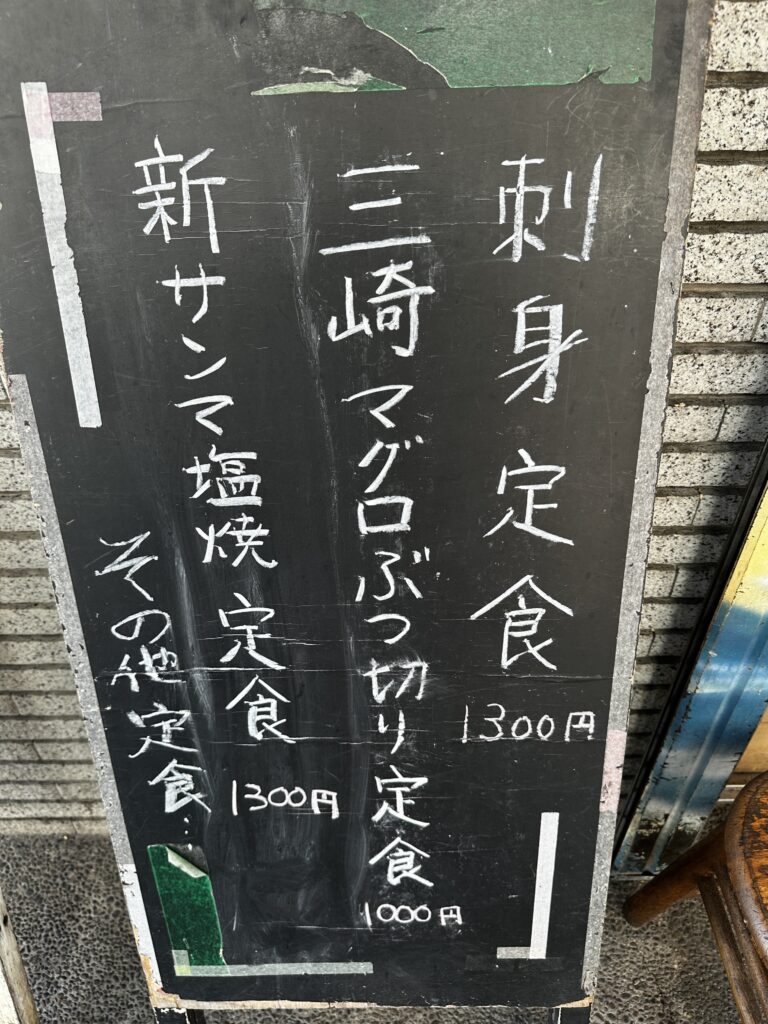 刺身定食
1300円
三崎マグロぶつ切り定食
1000円
新サンマ塩焼定食
1300円
その他定食…